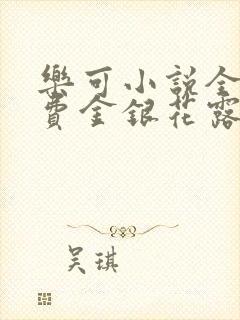 樂可小說全
費金銀花露
吴琪